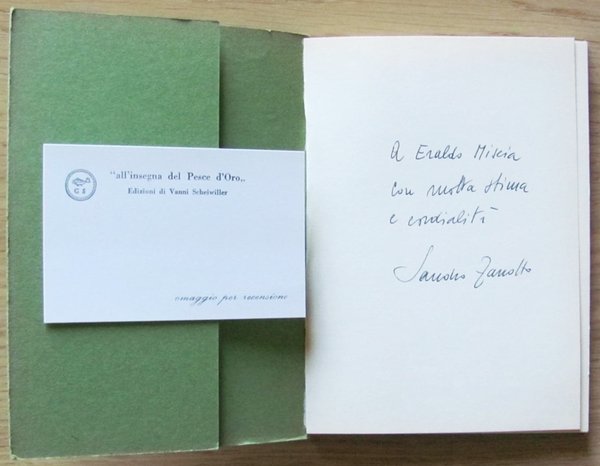 "all'insegna del Pesce d'Oro„
Edizioni di Vanni Scheiwiller
G S
omaggio per recensione
A Eraldo Miscia
con molta stima
e cordialità
Sandro Zanotto